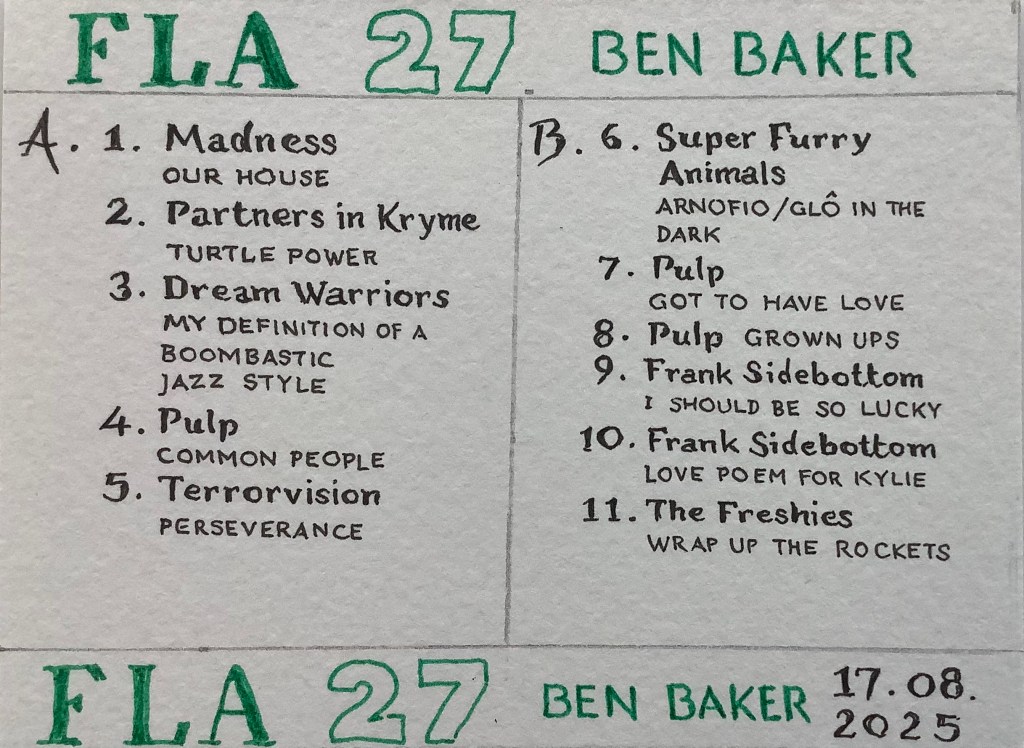 FLA 27 BEN BAKER
A. 1. Madness
OUR HOUSE
2. Partners in Kryme
TURTLE POWER
3. Dream Warriors
MY DEFINITION OF A
BOOMBASTIC
JAZZ STYLE
4. Pulp
COMMON PEOPLE
5. Terrorvision
PERSEVERANCE
B. 6. Super Furry
Animals
ARNOFIO/GLÔ IN THE
DARK
7. Pulp
GOT TO HAVE LOVE
8. Pulp GROWN UPS
9. Frank Sidebottom
I SHOULD BE SO LUCKY
10. Frank Sidebottom
LOVE POEM FOR KYLIE
11. The Freshies
WRAP UP THE ROCKETS
FLA 27 BEN BAKER 17.08.
2025